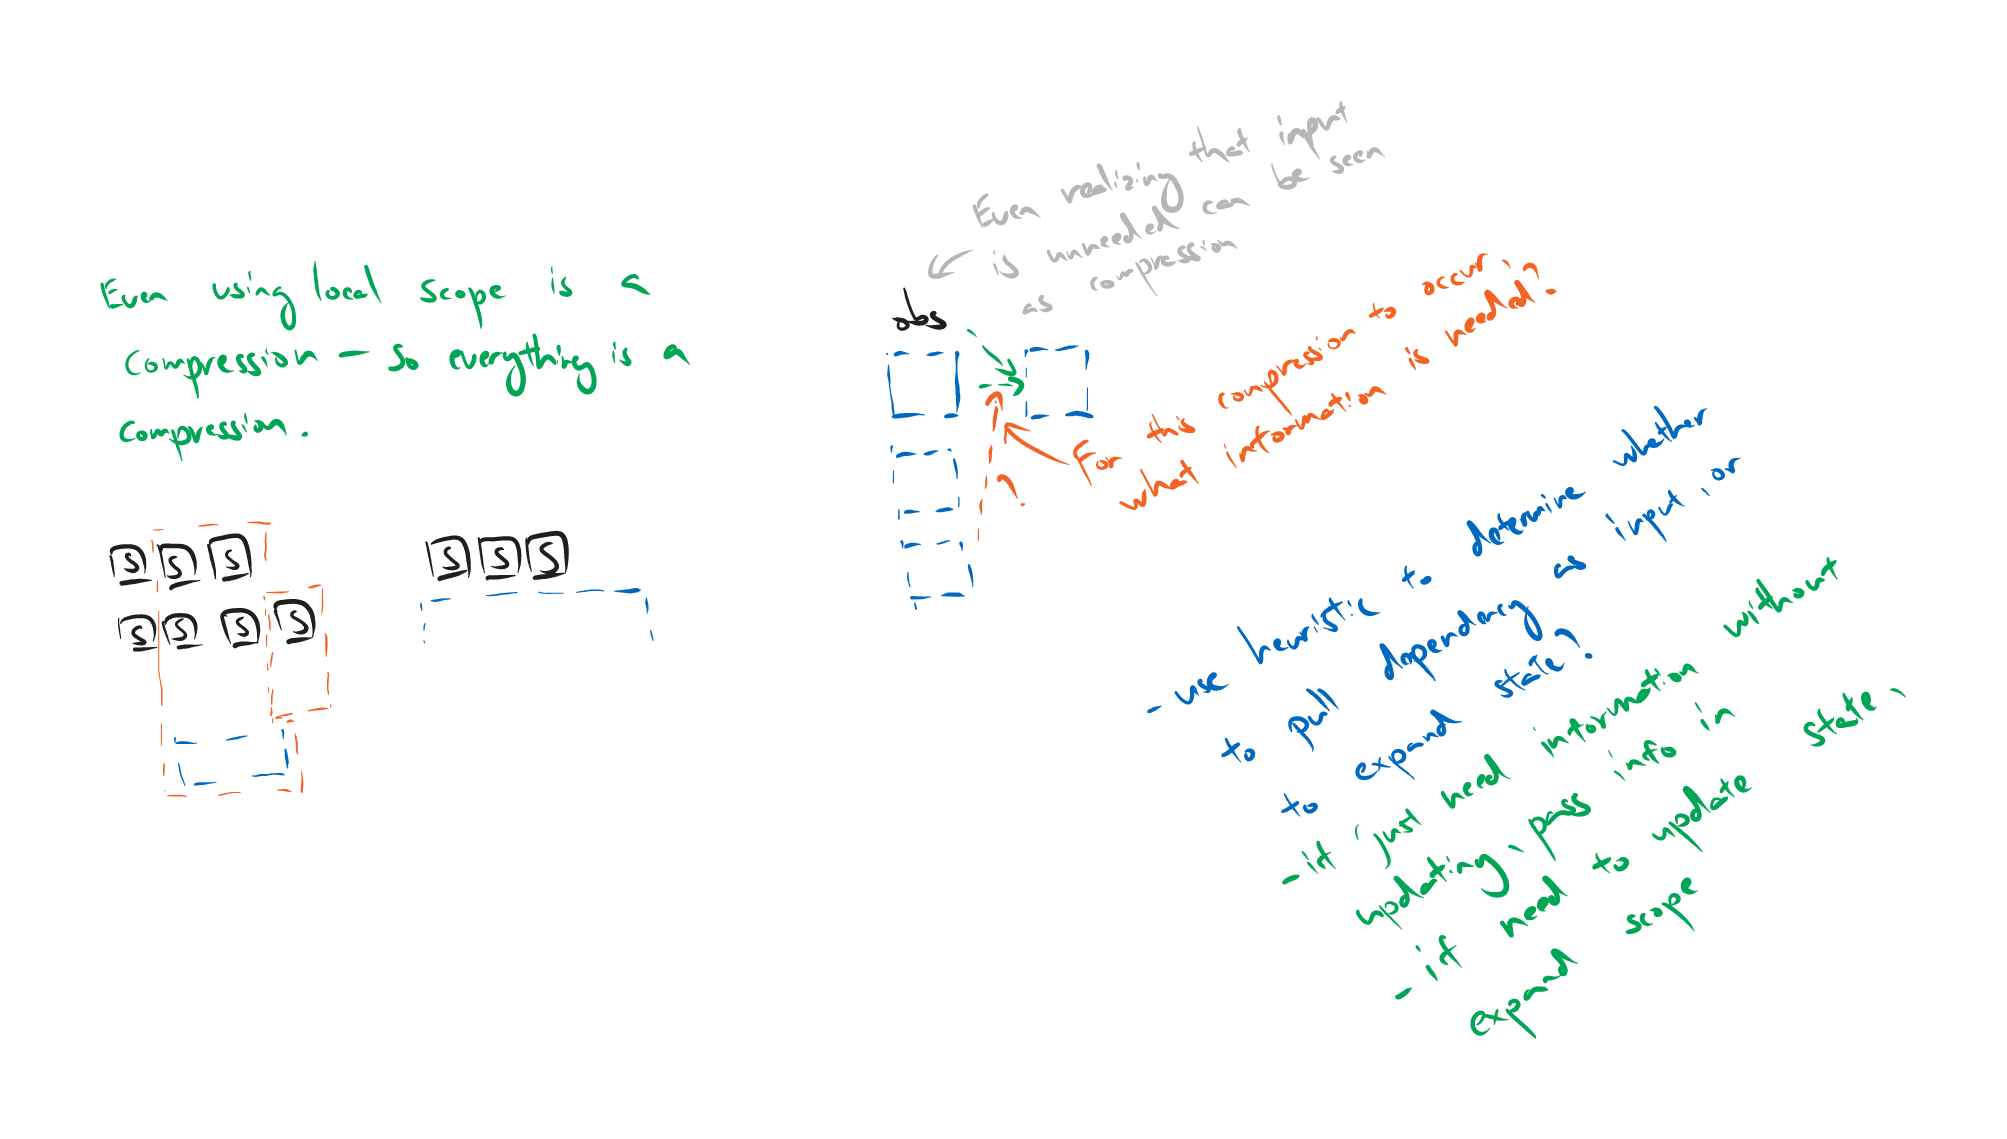 Even using local scope is a
compression — so everything is a
compression.
S S S
S S S S
S S S
Even realizing that input
is unneeded can be seen
as compression
obs
For this compression to occur,
what information is needed?
?
- use heuristic to determine whether
to pull dependency as input, or
to expand state?
- if just need information without
updating, pass info in
- if need to update state,
expand scope